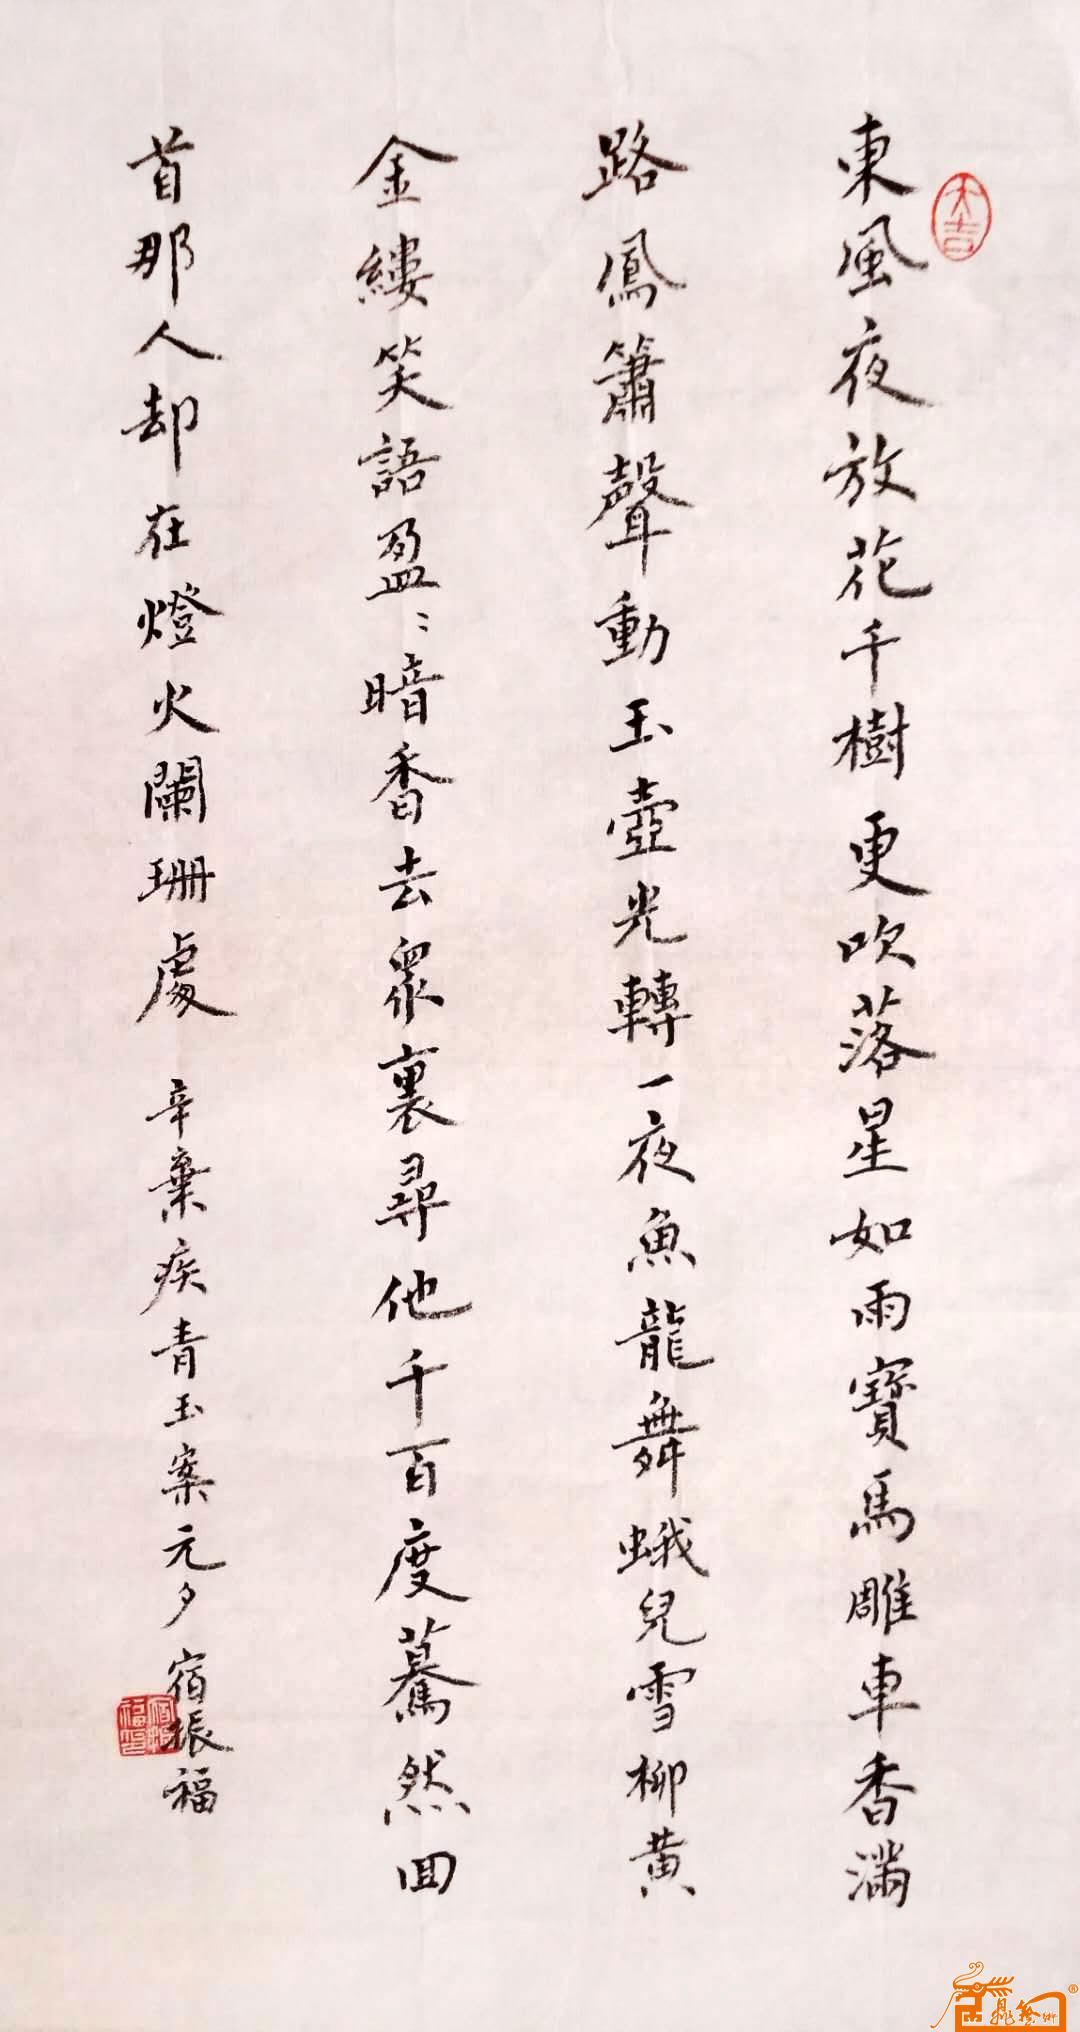 東風夜放花千樹更吹落星如雨寶馬雕車香滿
路鳳簫聲動玉壺光轉一夜魚龍舞蛾兒雪柳黄
金縷笑語盈〻暗香去眾裏尋他千百度驀然回
首那人却在燈火闌珊處 辛棄疾青玉案元夕 宿振福
大吉